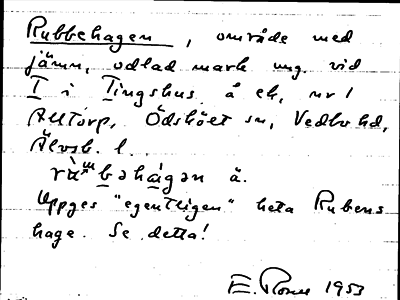 Rubbehagen, område med
jämn, odlad mark ung. vid
I i Tingshus å ek, nr 1
Alltorp, Ödsköet sn, Vedbo hd,
Älvsb. l.
bəhàgən ä.
Uppges "egentligen" heta Rubens
hage. Se detta!
E. 1953